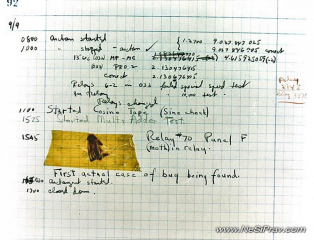 92
9/9
0800 antan started
1000 " stopped - antan ✓ { 1.2700 9.037 847 025
9.037 846 995 correct
13"uc (032) MP-MC 4.615925059(-2)
(033) PRO 2 2.130476415
correct 2.130676415
Relays 6-2 in 033 failed special speed test
in relay " test.
Relays changed
1100 Started Cosine Tape (Sine check)
1525 Started Multi Adder Test.
1545 Relay #70 Panel F
(moth) in relay.
First actual case of bug being found.
antangent started.
1700 closed down.
www.NeSlPrav.com